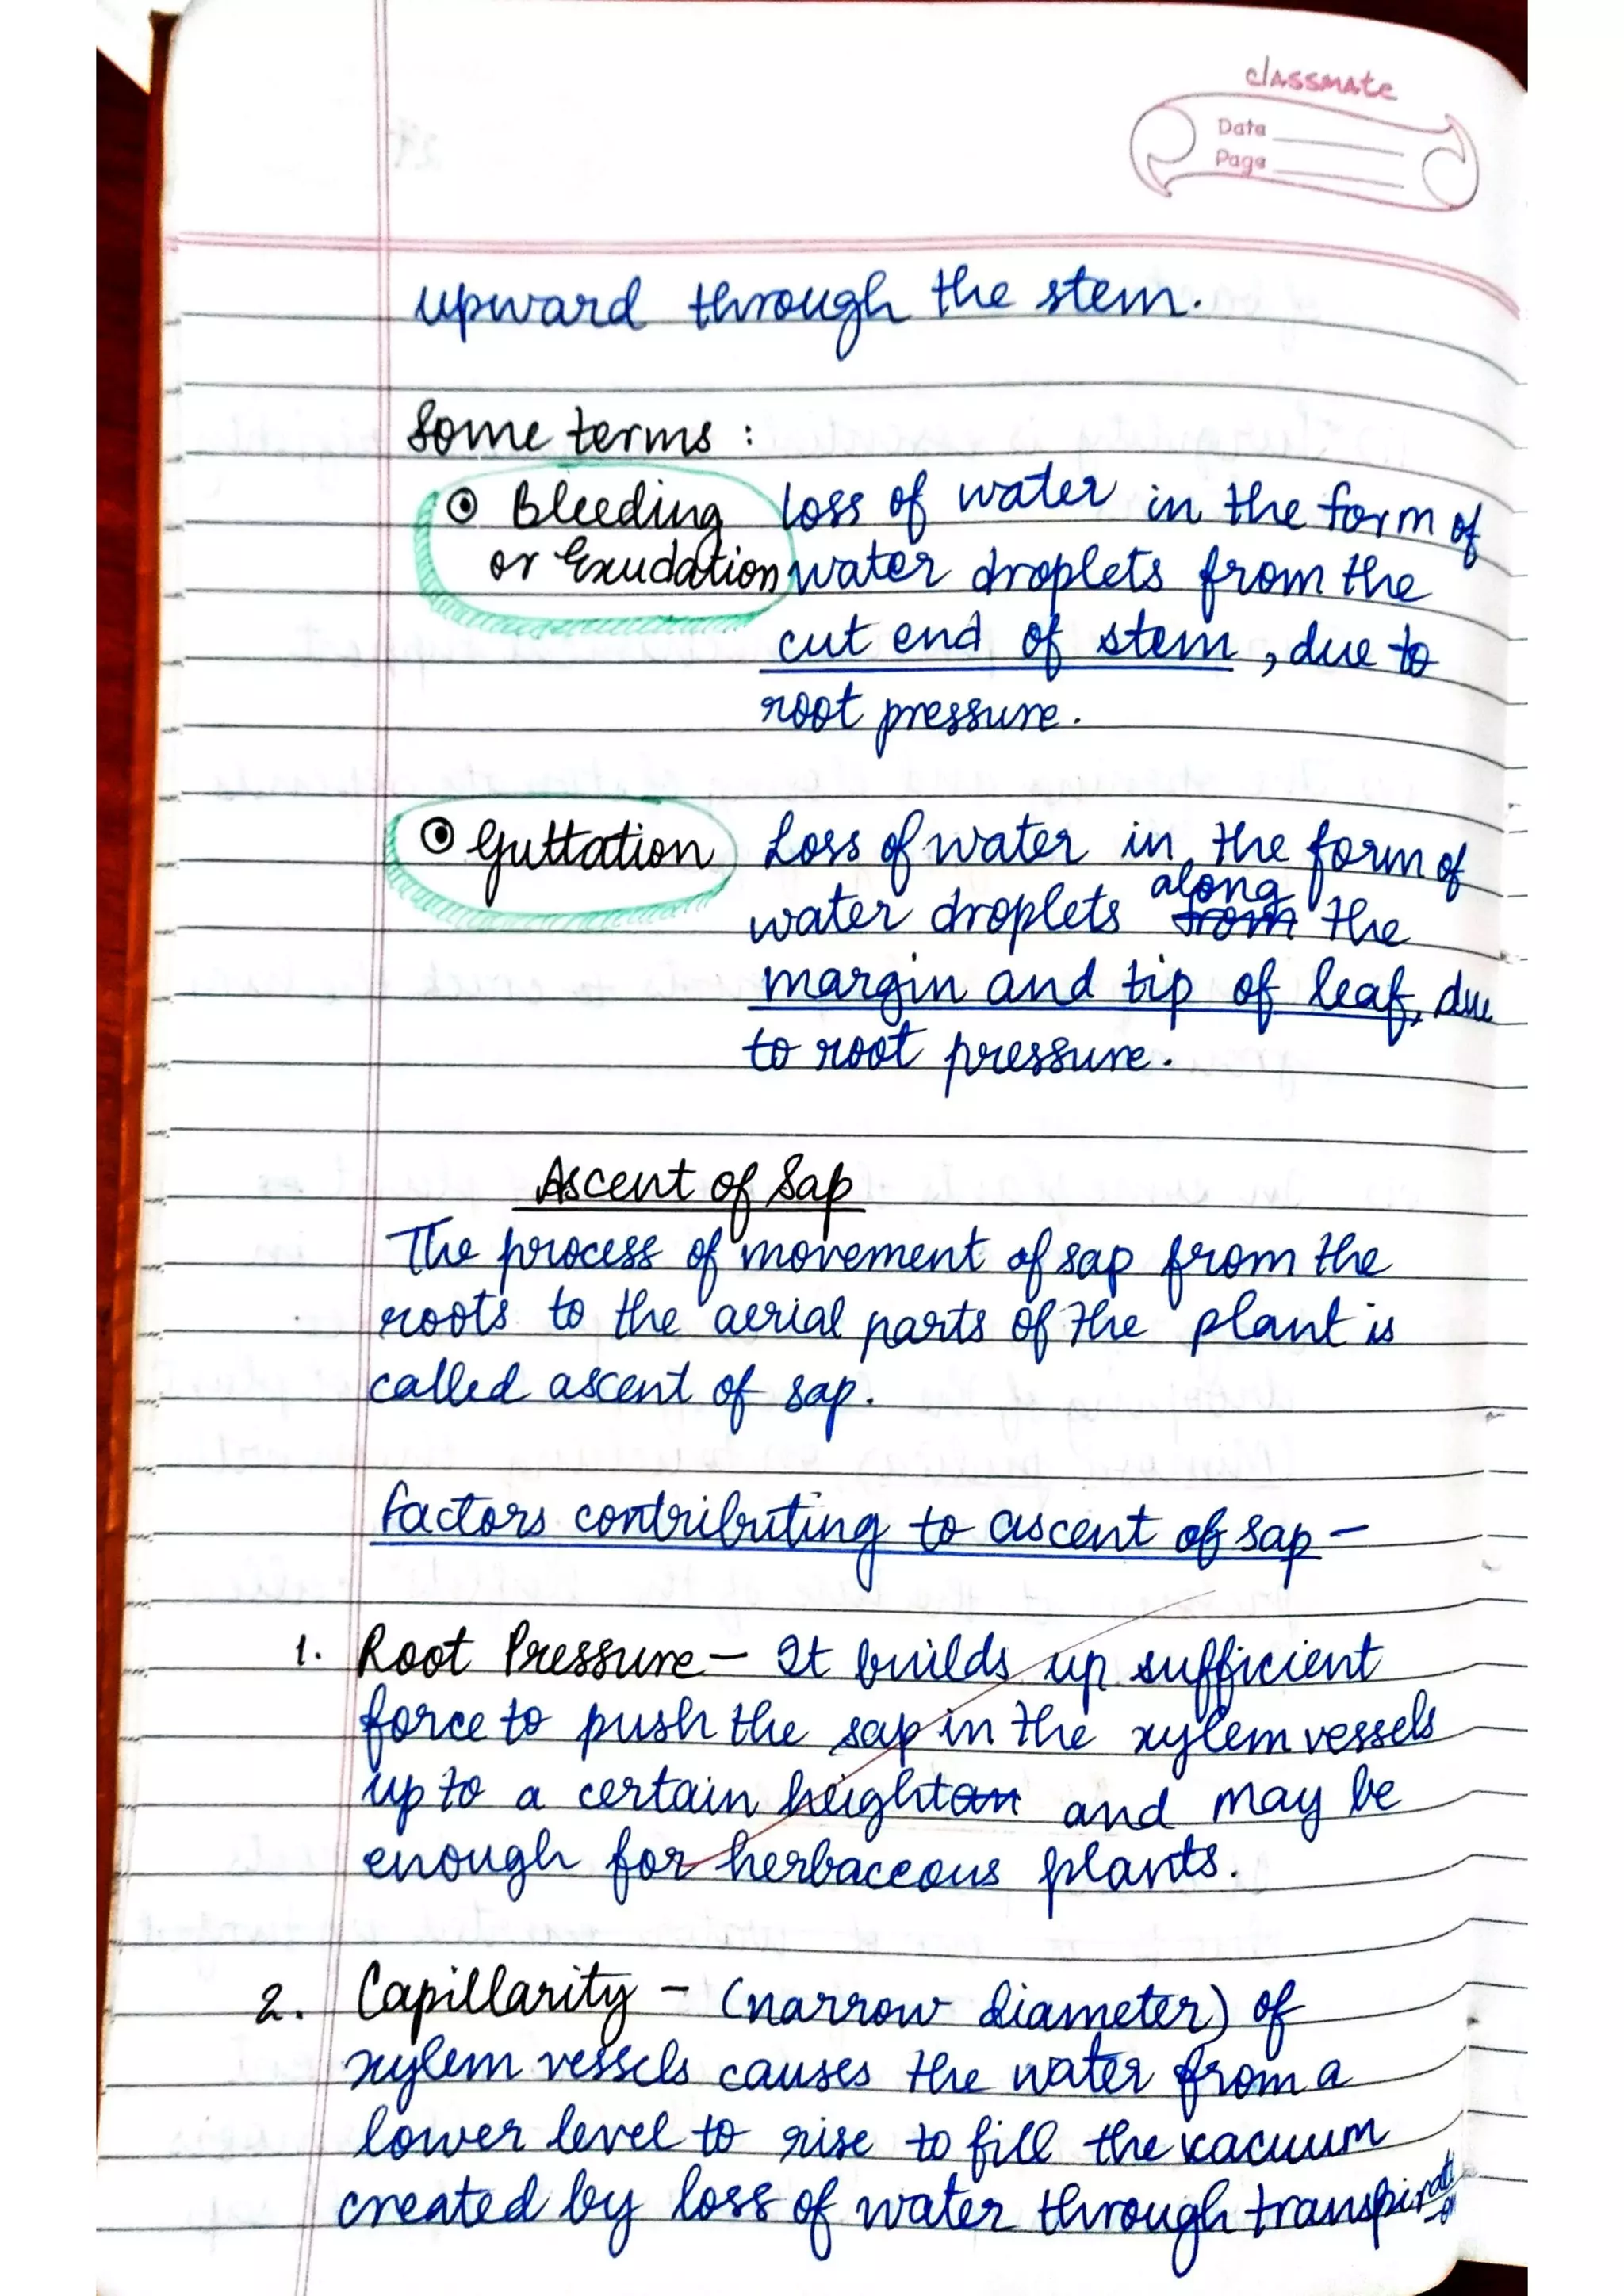 classmate
Date
Page
upward through the stem.
Some terms :
⊙ Bleeding loss of water in the form of
or Exudation water droplets from the
cut end of stem, due to
root pressure.
⊙ Guttation Loss of water in the form of
along
water droplets from the
margin and tip of leaf, due
to root pressure.
Ascent of Sap
The process of movement of sap from the
roots to the aerial parts of the plant is
called ascent of sap.
Factors contributing to ascent of sap -
1. Root Pressure - It builds up sufficient
force to push the sap in the xylem vessels
up to a certain height an and may be
enough for herbaceous plants.
2. Capillarity - (narrow diameter) of
xylem vessels causes the water from a
lower level to rise to fill the vacuum
created by loss of water through transpiration